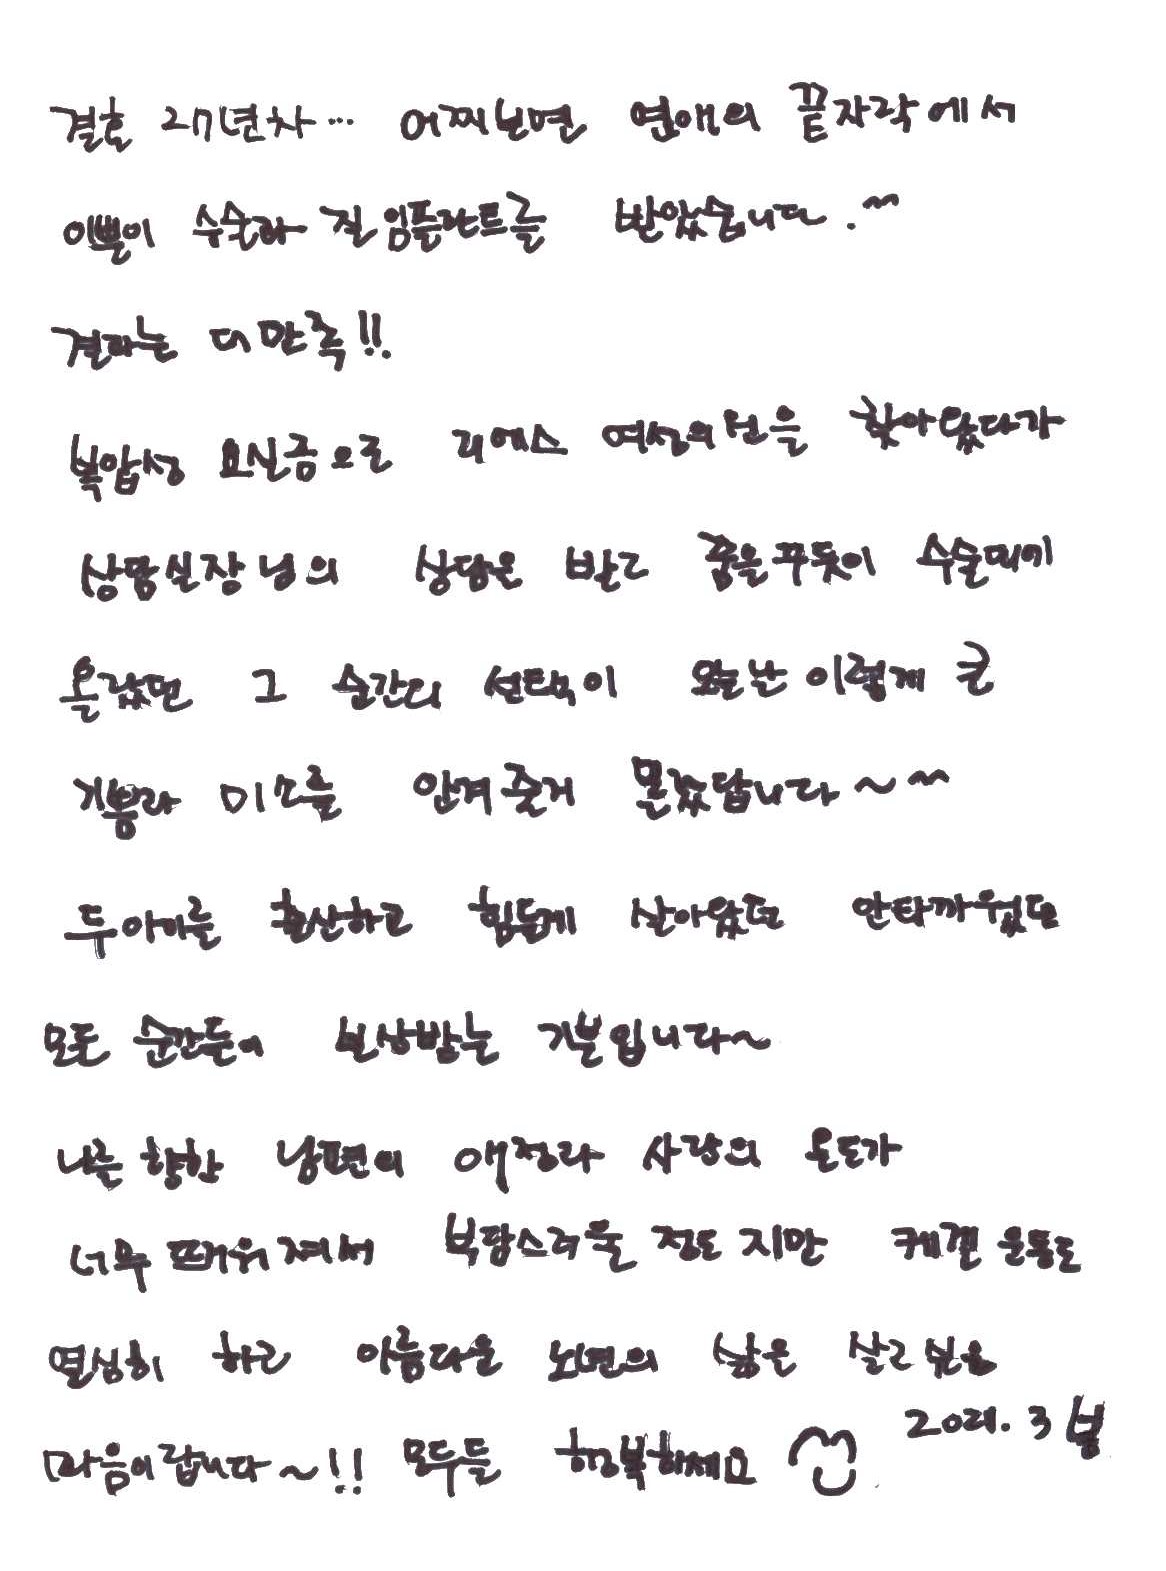 결혼 27년차... 어찌보면 연애의 끝자락에서
이쁜이 수술과 질 임플란트를 받았습니다.^^
결과는 대만족!!
복압성 요실금으로 리에스 여성의원을 찾아왔다가
상담실장님의 상담을 받고 꿈을꾸듯이 수술대에
올랐던 그 순간의 선택이 오늘날 이렇게 큰
기쁨과 미소를 안겨줄지 몰랐답니다~^^
두아이를 출산하고 힘들게 살아왔고 안타까웠던
모든 순간들이 보상받는 기분입니다~
나를 향한 남편의 애정과 사랑의 온도가
너무 뜨거워져서 부담스러울 정도지만 케겔 운동도
열심히 하고 아름다운 노년의 삶을 살고 싶은
마음이랍니다~!! 모두들 행복하세요
2021. 3 봄